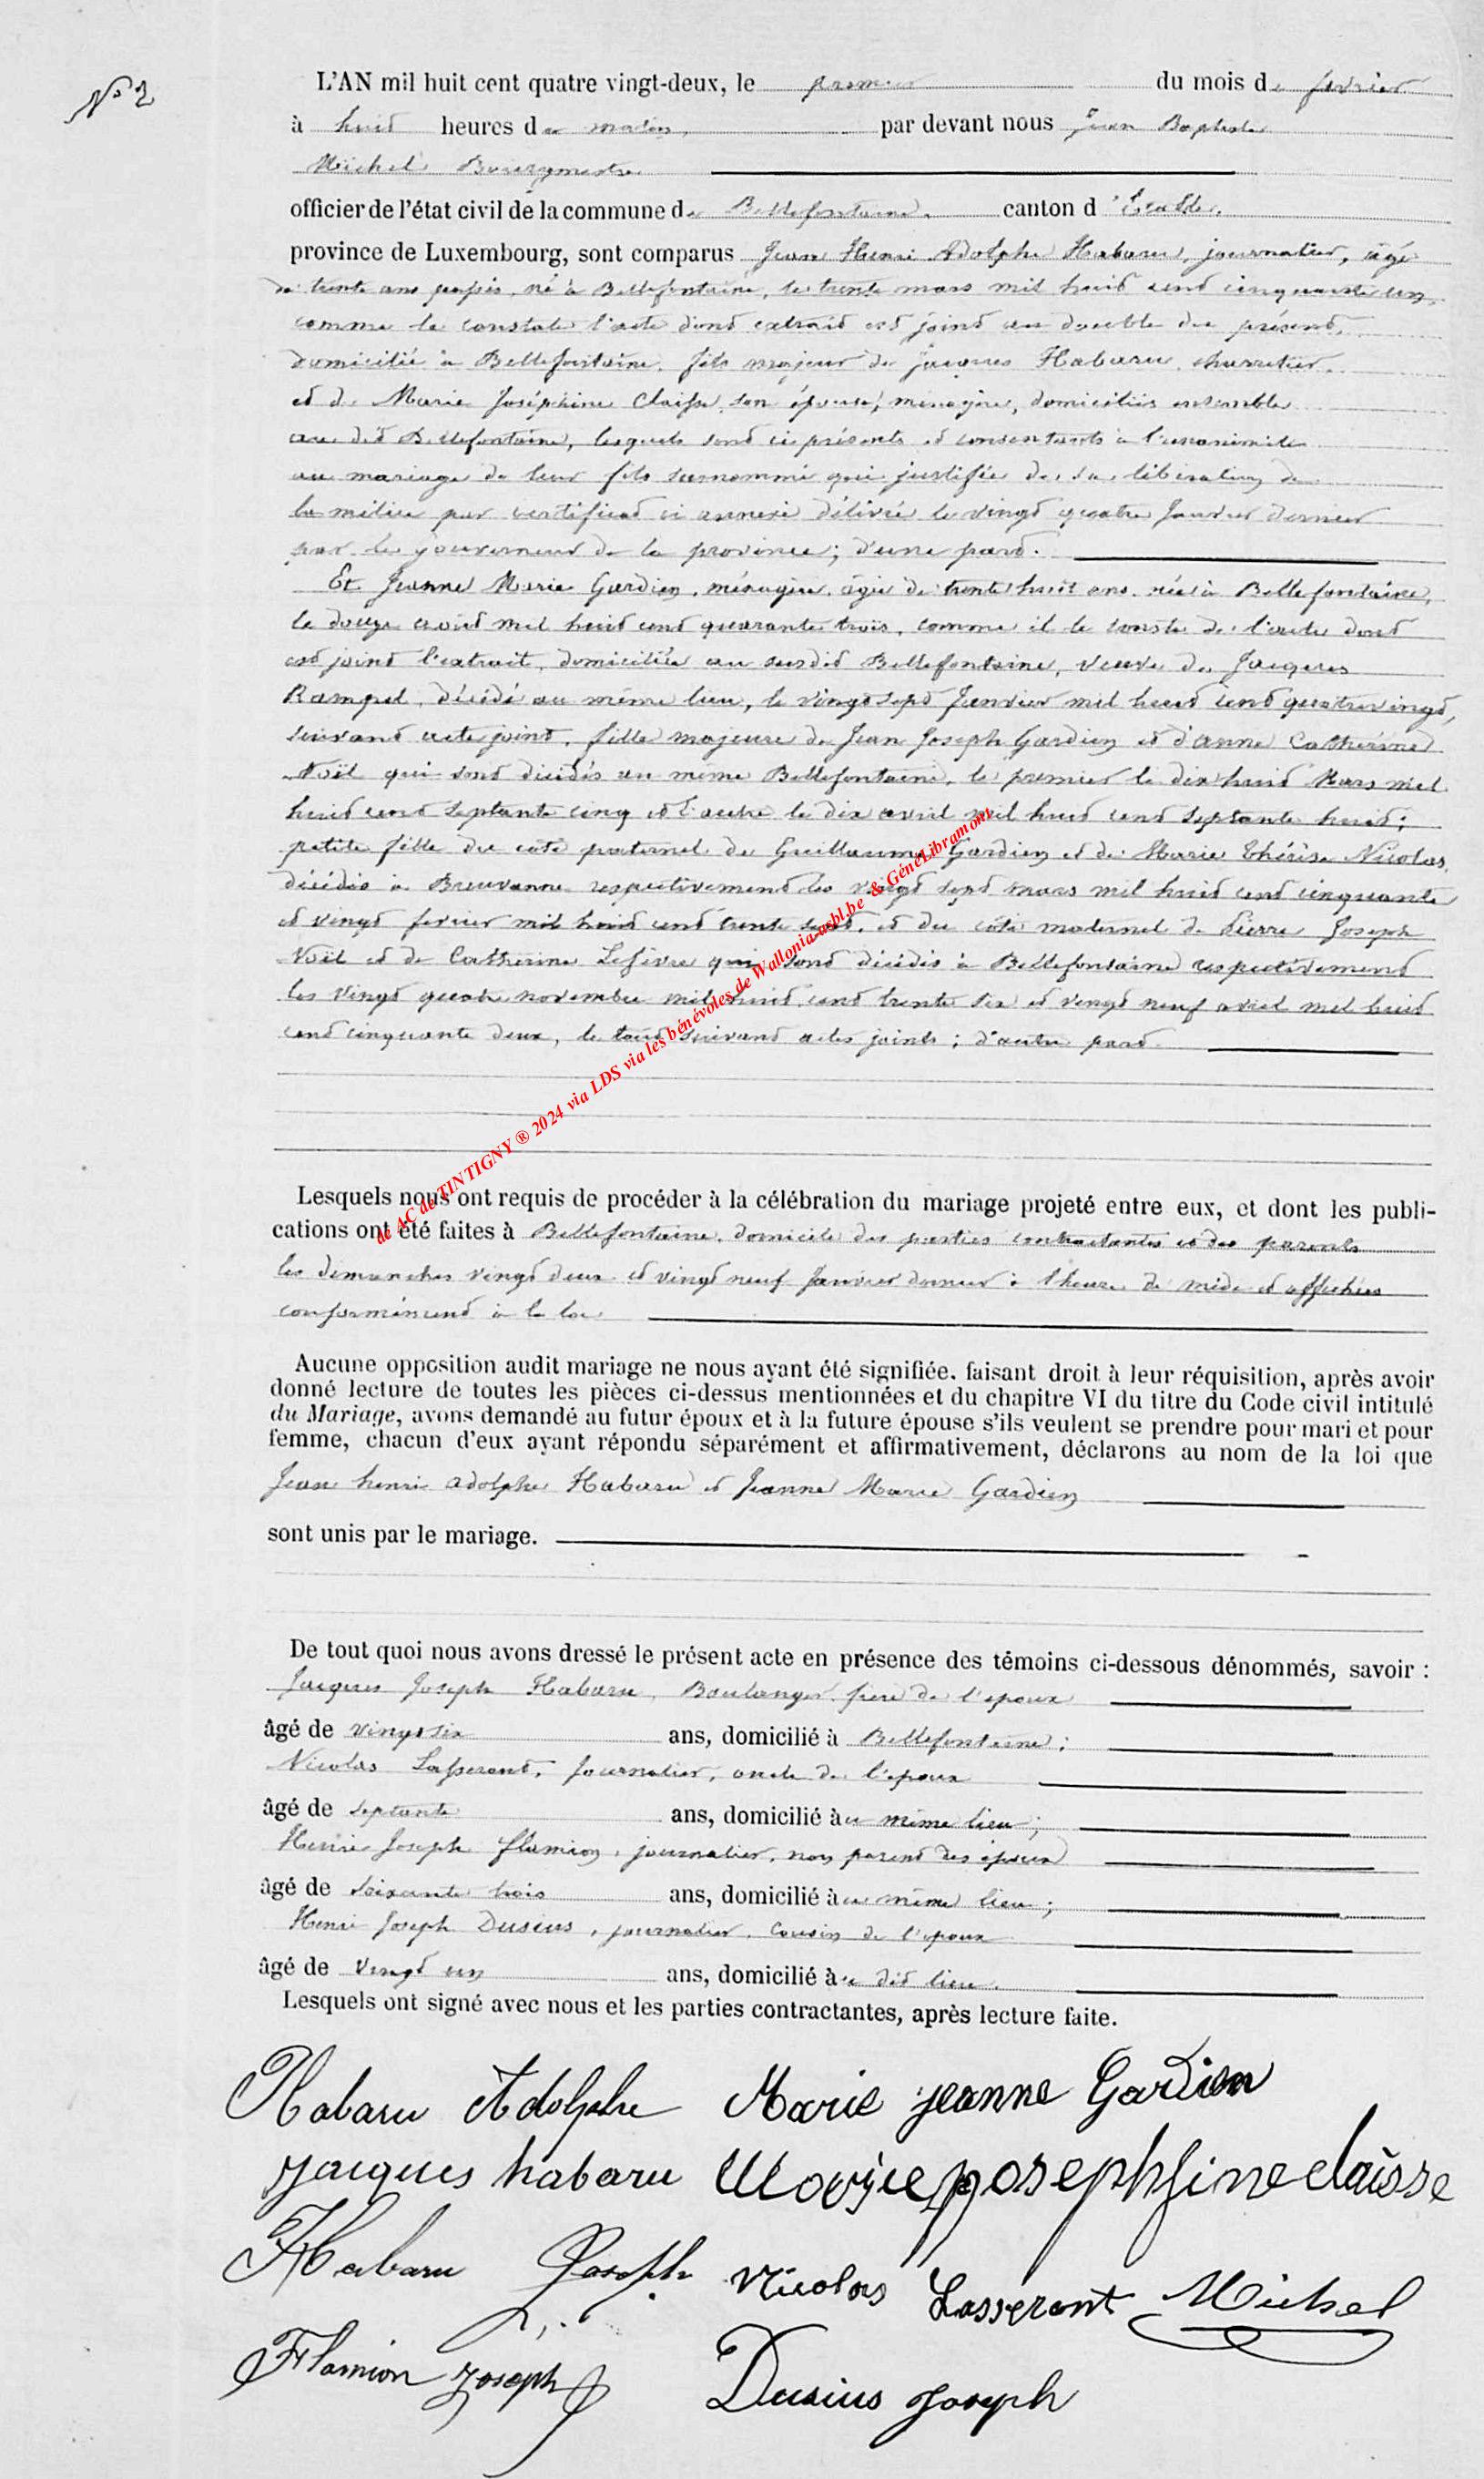 N° 2
L'AN mil huit cent quatre vingt-deux, le premier du mois de fevrier
à huit heures du matin, par devant nous Jean Baptiste
Michel Bourgmestre
officier de l'état civil de la commune de Bellefontaine. canton d'Etalle.
province de Luxembourg, sont comparus Jean Henri Adolphe Habaru, journalier, âgé
de trente ans passés, né à Bellefontaine, le trente mars mil huit cent cinquante un,
comme le constate l'acte dont extrait est joint au double du présent,
domicilié à Bellefontaine, fils majeur de Jacques Habaru, charretier,
et de Marie Joséphine Claisse, son épouse, ménagère, domiciliés ensemble
au dit Bellefontaine, lesquels sont ici présents et consentants à l'unanimité
au mariage de leur fils surnommé qui justifie de sa libération de
la milice par certificat ci annexé délivré le vingt quatre Janvier dernier
par le gouverneur de la province; d'une part.
Et Jeanne Marie Gardien, ménagère, âgée de trente huit ans, née à Bellefontaine,
le douze avril mil huit cent quarante trois, comme il le conste de l'acte dont
est joint l'extrait, domiciliée au susdit Bellefontaine, veuve de Jacques
Rampel, décédé au même lieu, le vingt sept Janvier mil huit cent quatre vingt,
suivant acte joint, fille majeure de Jean Joseph Gardien et d'anne Catherine
Noël qui sont décédés au même Bellefontaine, le premier le dix huit Mars mil
huit cent septante cinq et l'autre le dix avril mil huit cent septante huit;
petite fille du coté paternel de Guillaume Gardien et de Marie Thérèse Nicolas,
décédés à Breuvanne respectivement les vingt sept mars mil huit cent cinquante
et vingt fevrier mil huit cent trente sept, et du coté maternel de Pierre Joseph
Noël et de Catherine Lefèvre qui sont décédés à Bellefontaine respectivement
les vingt quatre novembre mil huit cent trente six et vingt neuf avril mil huit
cent cinquante deux, le tout suivant actes joints; d'autre part.
de AC de TINTIGNY ® 2024 via LDS via les bénévoles de Wallonia-asbl.be & GénéLibramont
Lesquels nous ont requis de procéder à la célébration du mariage projeté entre eux, et dont les publi-
cations ont été faites à Bellefontaine, domicile des parties contractantes et des parents
les dimanches vingt deux et vingt neuf Janvier dernier à l'heure de midi et affichées
conformément à la loi
Aucune opposition audit mariage ne nous ayant été signifiée. faisant droit à leur réquisition, après avoir
donné lecture de toutes les pièces ci-dessus mentionnées et du chapitre VI du titre du Code civil intitulé
du Mariage, avons demandé au futur époux et à la future épouse s'ils veulent se prendre pour mari et pour
femme, chacun d'eux ayant répondu séparément et affirmativement, déclarons au nom de la loi que
Jean henri adolphe Habaru et Jeanne Marie Gardien
sont unis par le mariage.
De tout quoi nous avons dressé le présent acte en présence des témoins ci-dessous dénommés, savoir :
Jacques Joseph Habaru, Boulanger, frère de l'epoux
âgé de vingt six ans, domicilié à Bellefontaine;
Nicolas Lasserant, journalier, oncle de l'epoux
âgé de septante ans, domicilié àu même lieu;
Henri Joseph flamion, journalier, non parent des époux
âgé de soixante trois ans, domicilié àu même lieu;
Henri Joseph Dusius, journalier, cousin de l'epoux
âgé de vingt un ans, domicilié àu dit lieu.
Lesquels ont signé avec nous et les parties contractantes, après lecture faite.
Habaru Adolphe Marie jeanne Gardien
Jacques habaru Marie josephfine claisse
Habaru Joseph Nicolas Lasserant Michel
Flamion Joseph Dusius Joseph